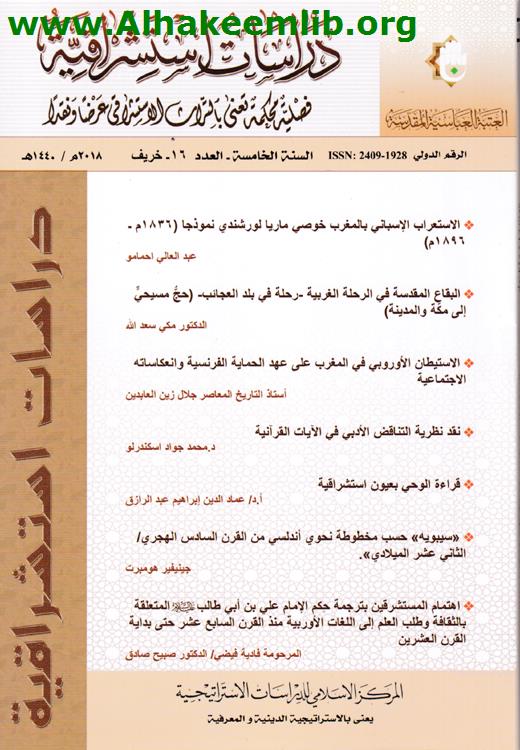 www.Alhakeemlib.org
دراسات استشراقية
فصلية محكمة تعنى بالتراث الاستشراقي عرضا ونقدا
العتبة العباسية المقدسة
الرقم الدولي ISSN: 2409-1928 السنة الخامسة - العدد ١٦ - خريف ٢٠١٨م / ١٤٤٠هـ
الاستعراب الإسباني بالمغرب خوصي ماريا لورشندي نموذجا (١٨٣٦م -
١٨٩٦م)
عبد العالي احمامو
البقاع المقدسة في الرحلة الغربية -رحلة في بلد العجائب- (حجُّ مسيحيٍّ
إلى مكّة والمدينة)
الدكتور مكي سعد الله
الاستيطان الأوروبي في المغرب على عهد الحماية الفرنسية وانعكاساته
الاجتماعية
أستاذ التاريخ المعاصر جلال زين العابدين
نقد نظرية التناقض الأدبي في الآيات القرآنية
د.محمد جواد اسكندرلو
قراءة الوحي بعيون استشراقية
أ.د/ عماد الدين إبراهيم عبد الرازق
«سيبويه» حسب مخطوطة نحوي أندلسي من القرن السادس الهجري/
الثاني عشر الميلادي».
جينيفير هومبرت
اهتمام المستشرقين بترجمة حكم الإمام علي بن أبي طالب المتعلقة
بالثقافة وطلب العلم إلى اللغات الأوربية منذ القرن السابع عشر حتى بداية
القرن العشرين
المرحومة فادية فيضي/ الدكتور صبيح صادق
المركز الاسلامي للدراسات الاستراتيجية
يعنى بالاستراتيجية الدينية و المعرفية
دراسات استشراقية